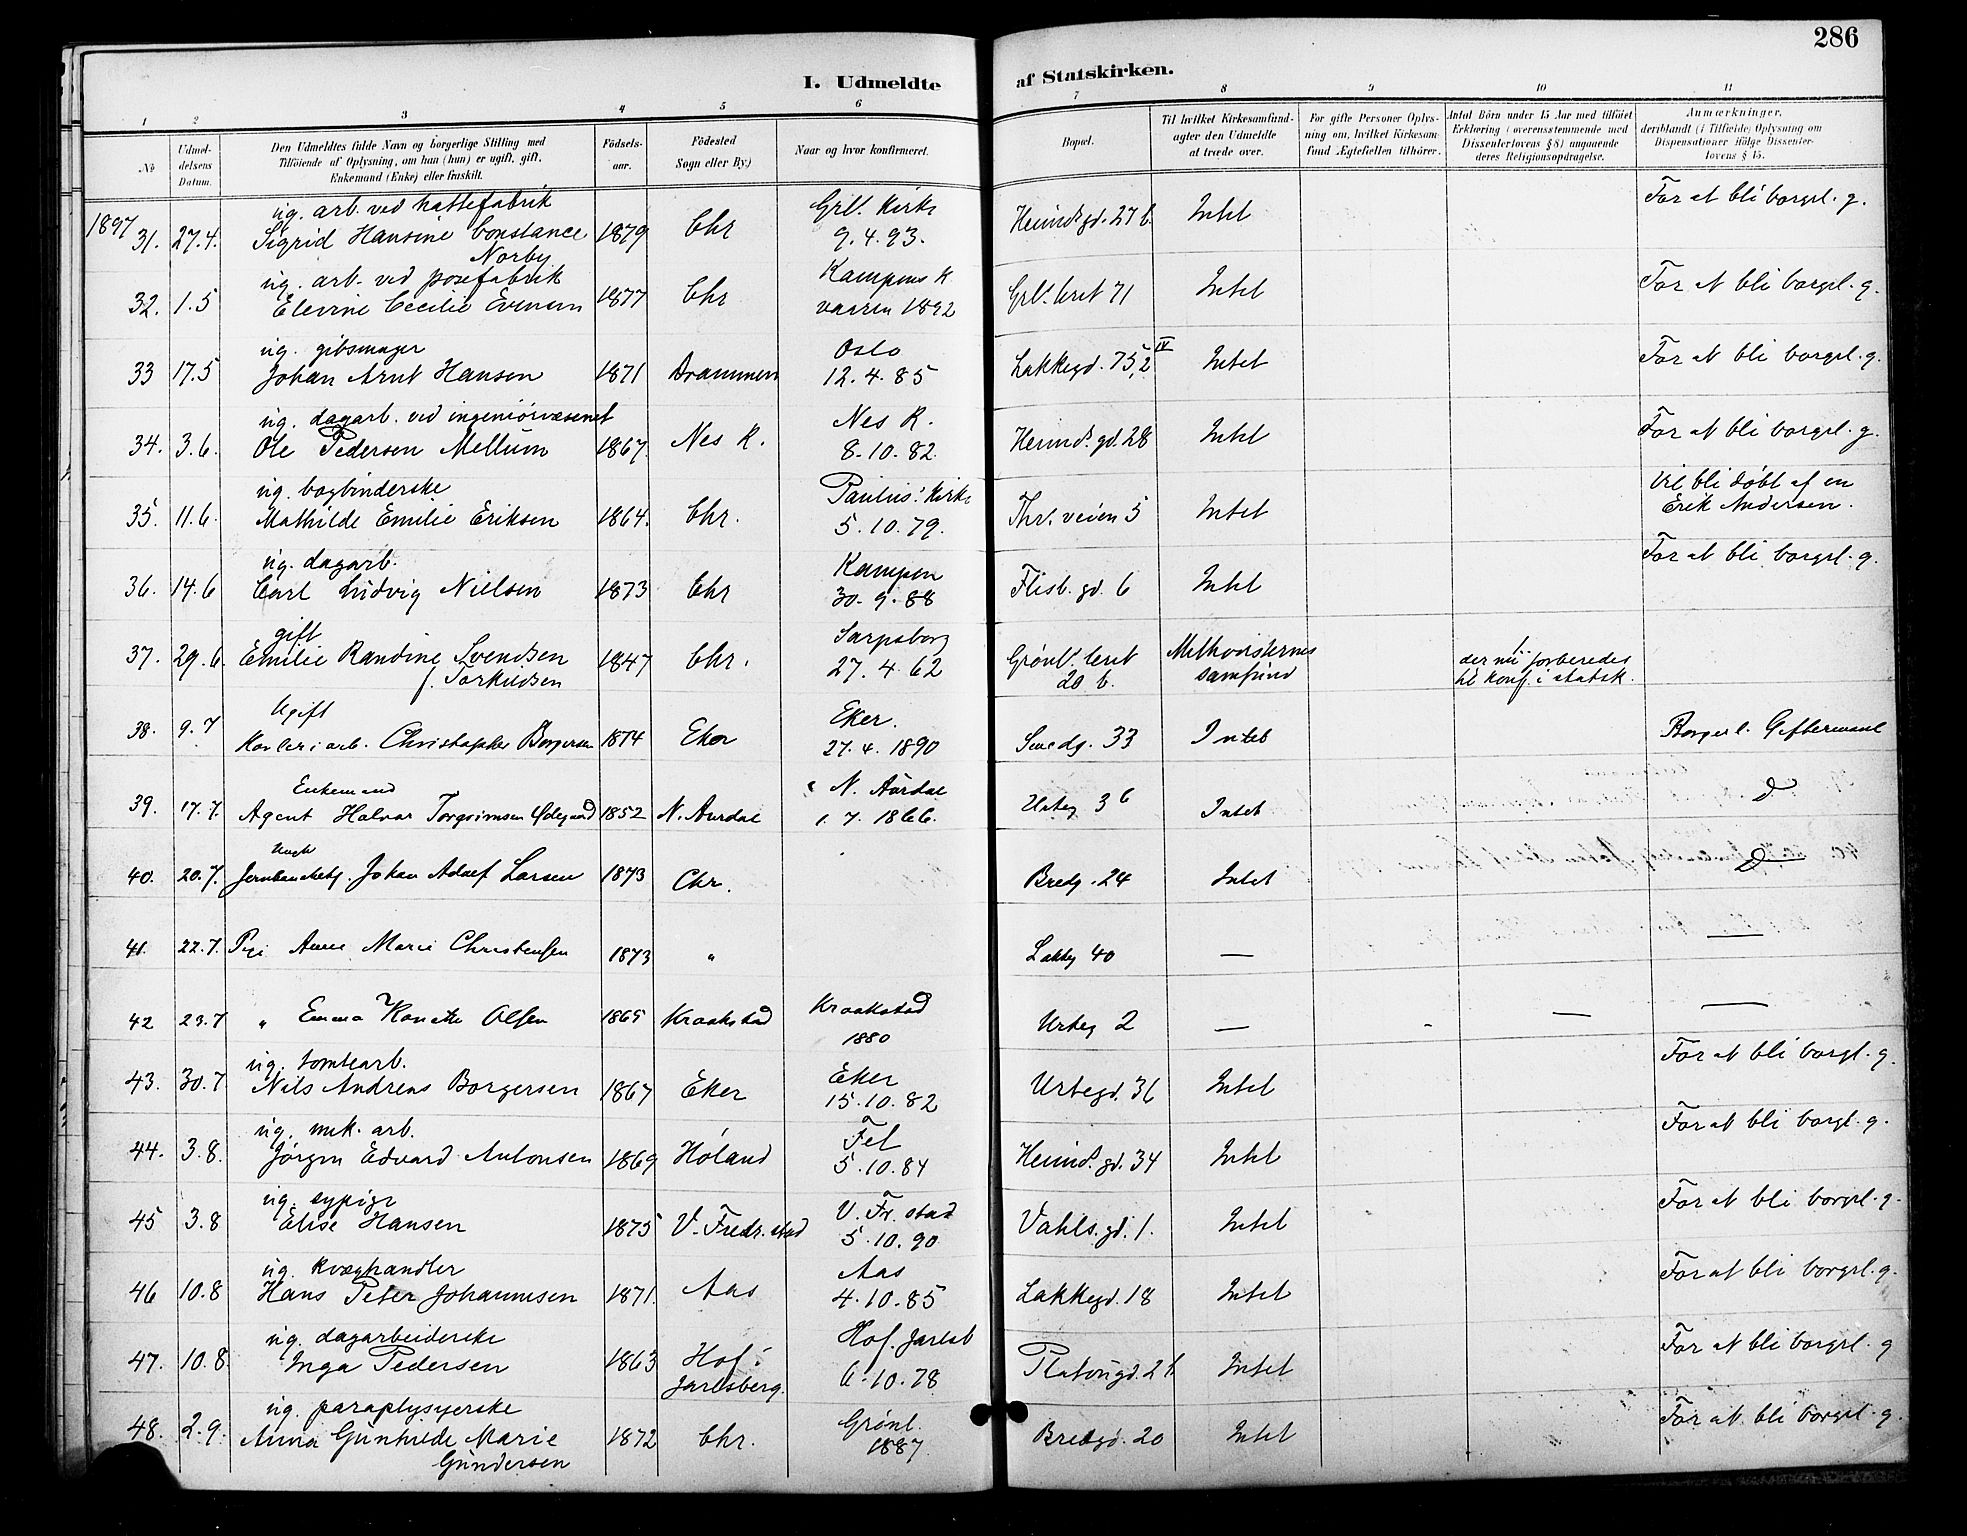 286
I. Udmeldte af Statskirken.
1 2 3 4 5 6 7 8 9 10 11
No
Udmeldelsens Datum.
Den Udmeldtes fulde Navn og borgerlige Stilling med
Tilföiende af Oplysning, om han (hun) er ugift, gift,
Enkemand (Enke) eller fraskilt.
Födselsaar.
Födested
Sogn eller By.)
Naar og hvor konfirmeret.
Bopæl.
Til hvilket Kirkesamfund
agter den Udmeldte
at træde over.
For gifte Personer Oplysning om, hvilket Kirkesamfund Ægtefællen tilhörer.
Antal Börn under 15 Aar med tilföiet
Erklæring (overensstemmende med
Dissenterlovens § 8) angaaende
deres Religionsopdragelse.
Anmærkninger,
deriblandt (i Tilfælde) Oplysning om
Dispensationer ifölge Dissenterlovens § 15.
1897
ug. arb. ved hattefabrik Grl. kirke For at bli borgrl. g.
31. 27.4. Sigrid Hansine Constance 1879 Chr 9.4.93. Heimd. gd. 27 b. Intet
Norby
ug. arb. ved posefabrik Kampens K For at bli borgrl. g.
32. 1.5 Elevine Cecilie Evensen 1877 Chr vaaren 1892 Grl. leret 71 Intet
ug. gibsmager Oslo IV For at bli borgrl. g.
33 17.5 Johan Arnt Hansen 1871 Drammen 12.4.85 Lakkegd. 75,2 Intet
ug. dagarb. ved ingeniörvæsenet Nes K. For at bli borgrl. g.
34. 3.6. Ole Pedersen Mellum 1867. Nes K. 8.10.82 Heimd. gd. 28 Intet
ug. bogbinderske Paulus' kirke Vil bli döbt af en
35. 11.6. Mathilde Emilie Eriksen 1864. Chr. 5.10.79. Thv. veien 5 Intet Erik Andersen.
ug. dagarb. Kampen For at bli borgrl. g.
36. 14.6 Carl Ludvig Nielsen 1873 Chr 30.9.88 Flisb. gd. 6 Intet
gift Sarpsborg
37. 29.6. Emilie Randine Svendsen 1847 Chr. 27.4.62 Grönl. leret Methodisternes 1 der nu forberedes
f. Torkildsen 20 b. samfund til konf. i statsk.
Ugift Eker.
38. 9.7 arb. Christopher Borgersen 1874 Eker 27.4.1890 Smedg. 33 Intet Borgerl. Giftermaal
Enkemand N. Aurdal
39. 17.7. Agent Halvor Torgrimsen Ødegaard 1852 N. Aurdal 1.7.1866. Urteg 36 Intet D
Ungk
40. 20.7. Johan Adolf Larsen 1873 Chr. Bredg. 24 Intet D
41. 22.7. Pige Anne Marie Christensen 1873 " Lakkeg 40 — —
42 23.7 " Emma Olsen 1865 Kraakstad Kraakstad Urteg 2 — — —
1880
ug. tomtearb. Eker For at bli borgl. g.
43. 30.7. Nils Andreas Borgersen 1867 Eker 15.10.82 Urtegd. 36 Intet
ug. mek. arb. Fet For at bli borgl. g.
44. 3.8. Jörgen Edvard Antonsen 1869 Höland 5.10.84 Heimd. gd. 34 Intet
ug. sypige V. Fr. stad For at bli borgrl. g.
45 3.8 Elise Hansen 1875 V. Fredr. stad 5.10.90 Vahls. gd. 1. Intet
ug. kvæghandler Aas For at bli borgrl. g.
46 10.8 Hans Peter Johannesen 1871. Aas 4.10.85 Lakkegd. 18 Intet
ug. dagarbeiderske Hof. Jarlsb For at bli borgrl. g
47. 10.8. Inga Pedersen 1863 Hof i 6.10.78 Platougd. 2 b. Intet
Jarlsberg.
ug. paraplysyerske Grönl. For at bli borgrl. g.
48. 2.9. Anna Gunhilde Marie 1872 Chr. 1887. Bredgd. 20 Intet
Gundersen